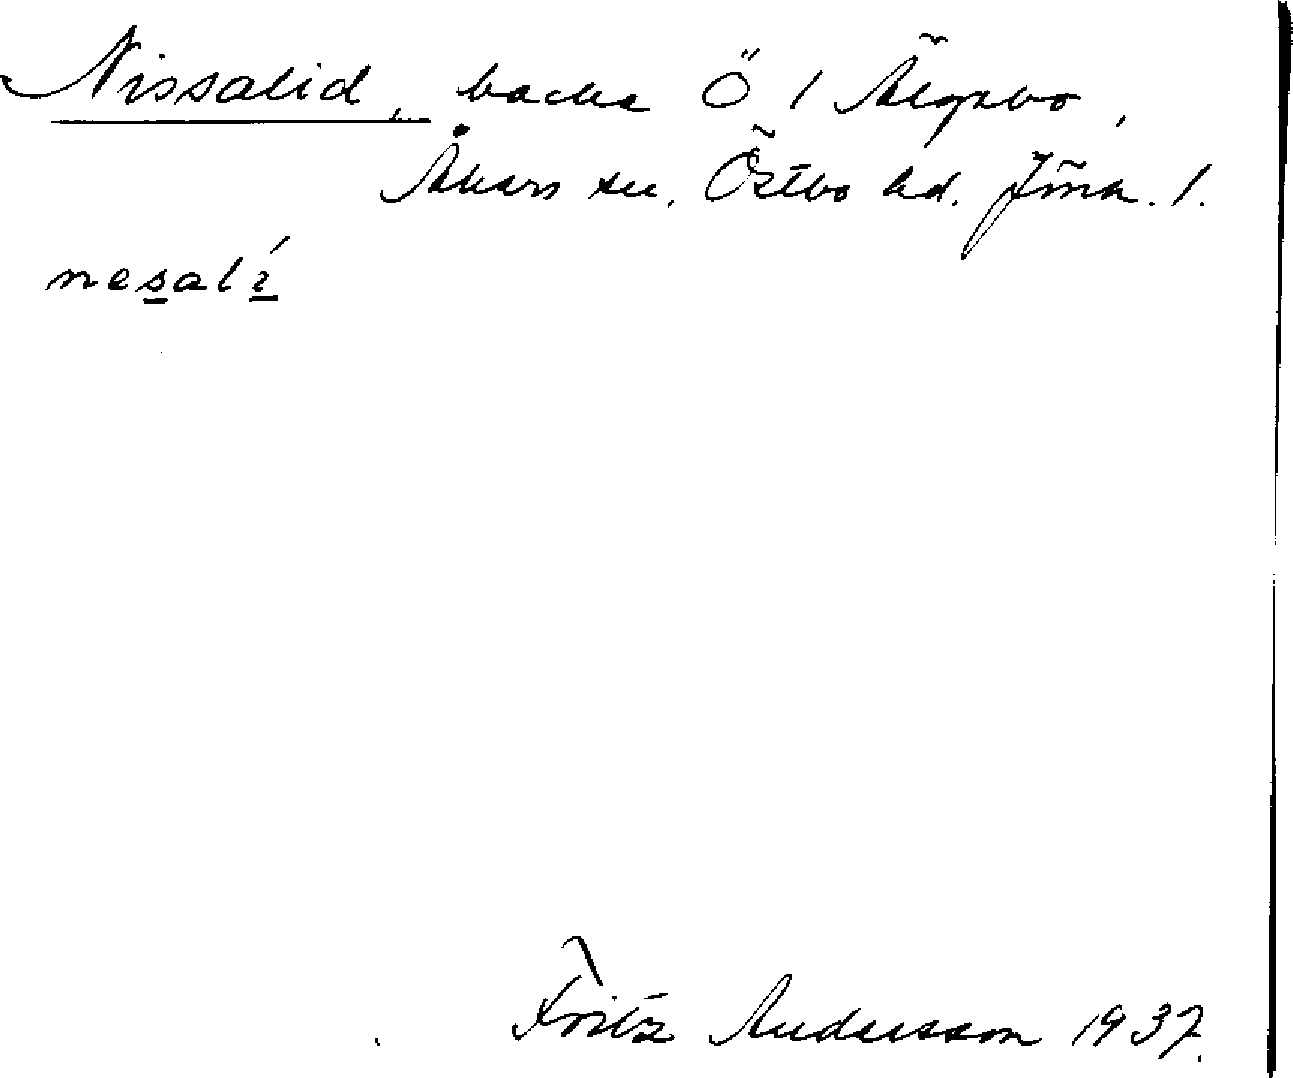 Nissalid, backe Ö / Älgabo,
Åkers sn. Östbo hd. Jönk. l.
nesalí
Fritz Andersson 1937.